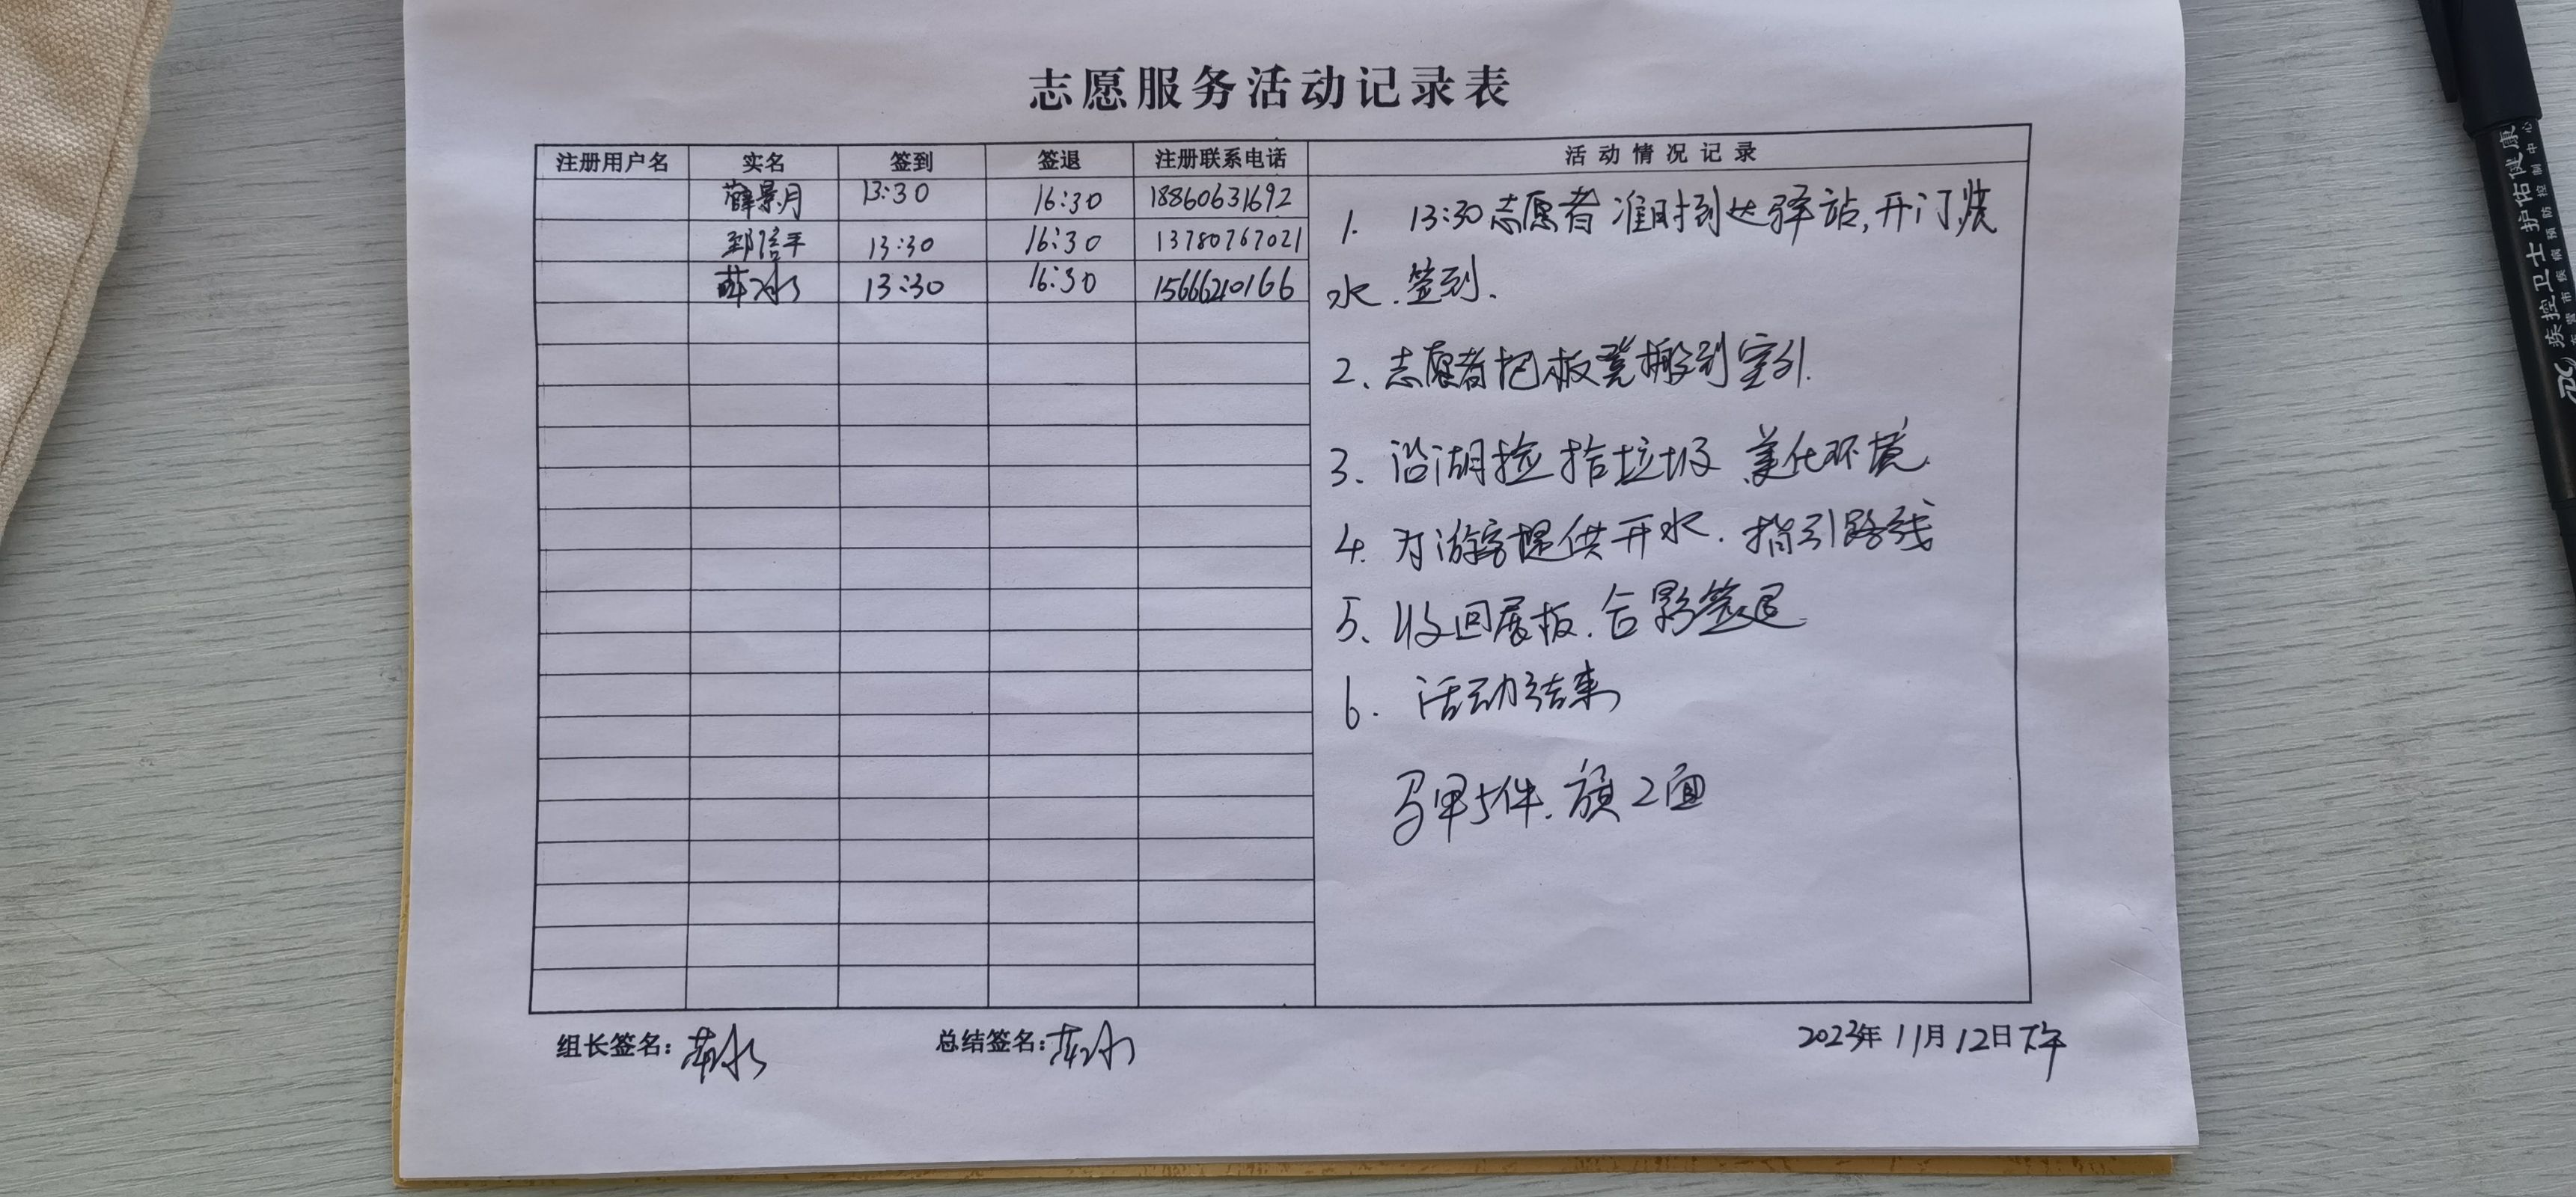 志愿服务活动记录表
注册用户名 实名 签到 签退 注册联系电话 活动情况记录
薛景月 13:30 16:30 18860631692
信平 13:30 16:30 13780767021
冰 13:30 16:30 15666210166
1. 13:30志愿者准时到达驿站,开门烧
水.签到.
2、志愿者把板凳搬到室外.
3、沿湖捡拾垃圾 美化环境.
4.对游客提供开水.指引路线
5、收回展板.合影签退.
6.活动结束
马甲5件.旗2面
组长签名: 总结签名:
2023年11月12日下午
疾控卫士 护佑健康
市疾病预防控制中心